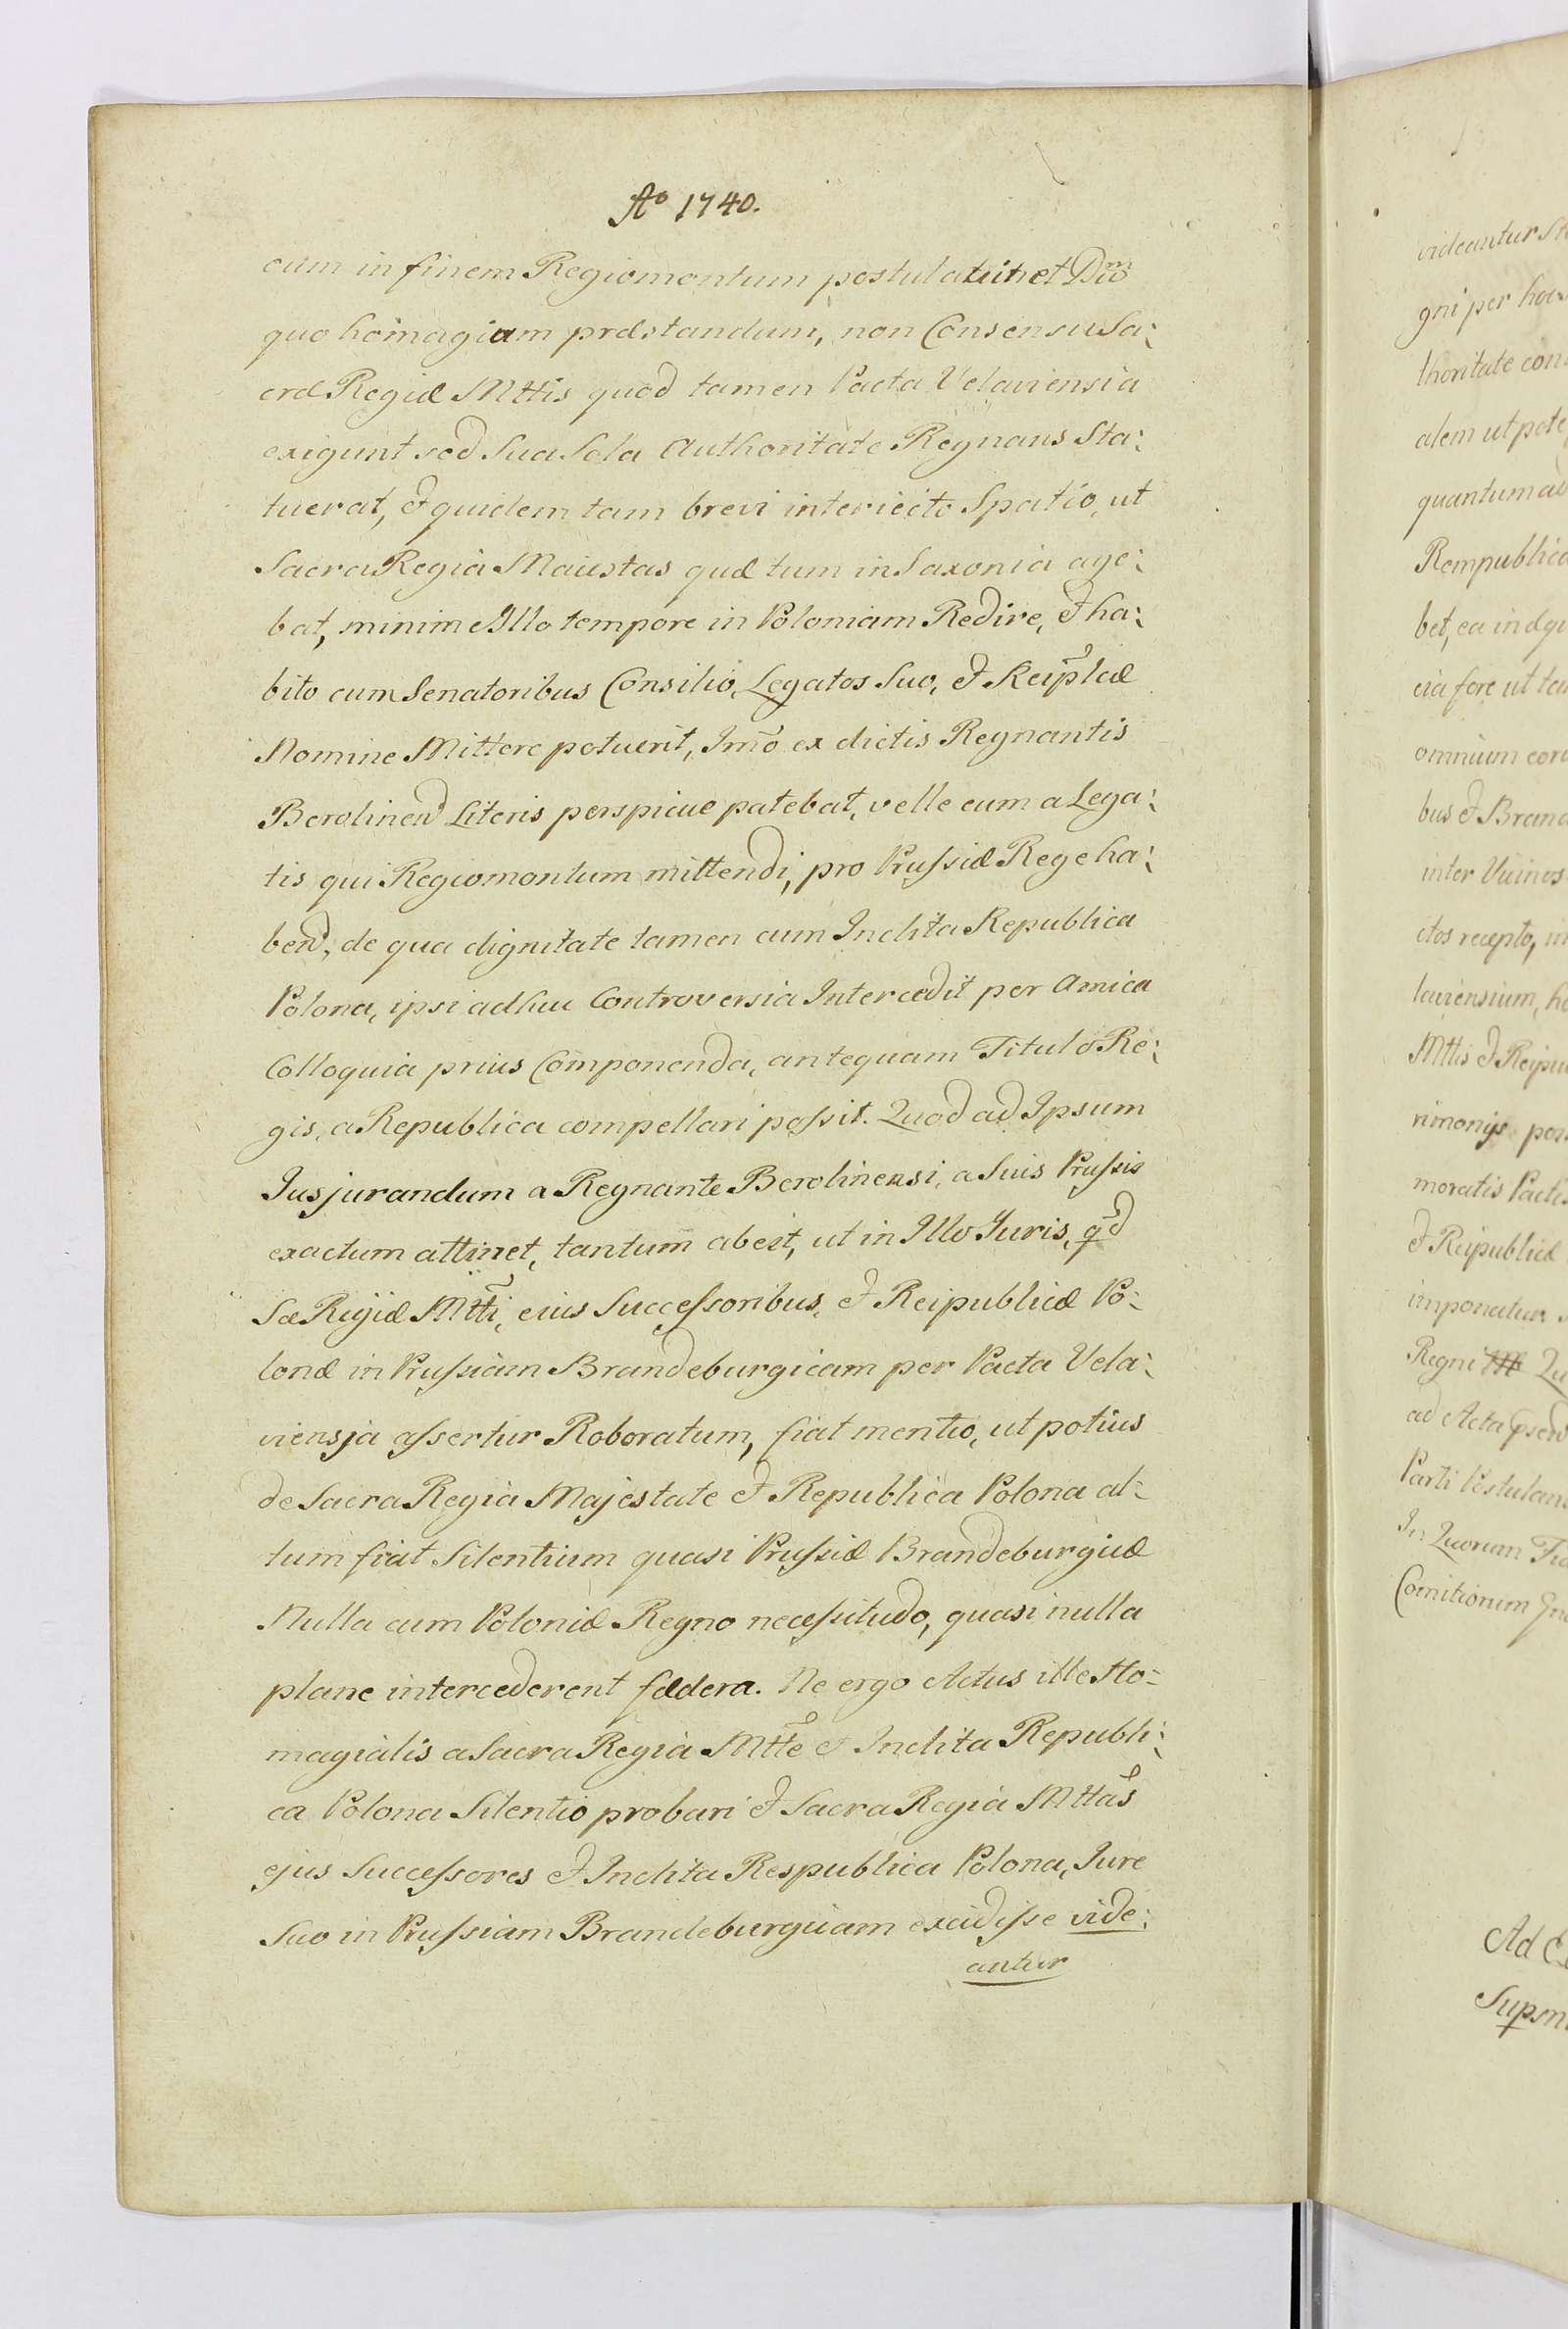 Aº 1740.
eum in finem Regiomontum postulaturet Dũm
quo homagium præstandum, non Consensu Sa:
cræ Regiæ Mttis quod tamen Pacta Velaviensia
exigunt sed Sua Sola Authoritate Regnans Sta:
tuerat, et quidem tam brevi interiecto Spatio, ut
Sacra Regia Maiestas quæ tum in Saxonia age:
bat, minime Illo tempore in Poloniam Redire, et ha:
bito cum Senatoribus Consilio, Legatos Suo, et Reip̃læ
Nomine Mittere potuerit, Imõ ex dictis Regnantis
Berolinen Literis perspicue patebat, velle eum a Lega:
tis qui Regiomontum mittendi, pro Prussiæ Rege ha:
beri, de qua dignitate tamen cum Inclita Republica
Polona, ipsi adhuc Controversia Intercedit per Amica
Colloquia prius Componenda, antequam Titulo Re:
gis, a Republica compellari possit. Quod ad Ipsum
Jusjurandum a Regnante Berolinensi, a Suis Prussis
exactum attinet, tantum abest, ut in Illo Juris, qd
Sæ Regiæ Mtti, eius Successoribus, et Reipublicæ Po:
lonæ in Prussiam Brandeburgicam per Pacta Vela:
viensja assertur Roboratum, fiat mentio, ut potius
de Sacra Regia Majestate et Republica Polona al:
tum fiat Silentium quasi Prussiæ Brandeburgiæ
Nulla cum Poloniæ Regno necessitudo, quasi nulla
plane intercederent fædera. Ne ergo Actus ille Ho:
magialis a Sacra Regia Mtte et Inclita Republi:
ca Polona Silentio probari et Sacra Regia Mttas
ejus Successores et Inclita Respublica Polona, Jure
Suo in Prussiam Brandeburgicam excidisse vide:
antur
videantur
gni per
thoritate
alem ut pote
quantum
Rempublica
bet, ea in
cia fore ut
omnium
bus et
inter Vicinos
ctos recepto,
laviensium,
Mttis et
rimonijs
moratis Pactis
et Reipublicæ
imponatur
Regni
ad Acta
Parti
In Quorum
Comitiorum
Ad